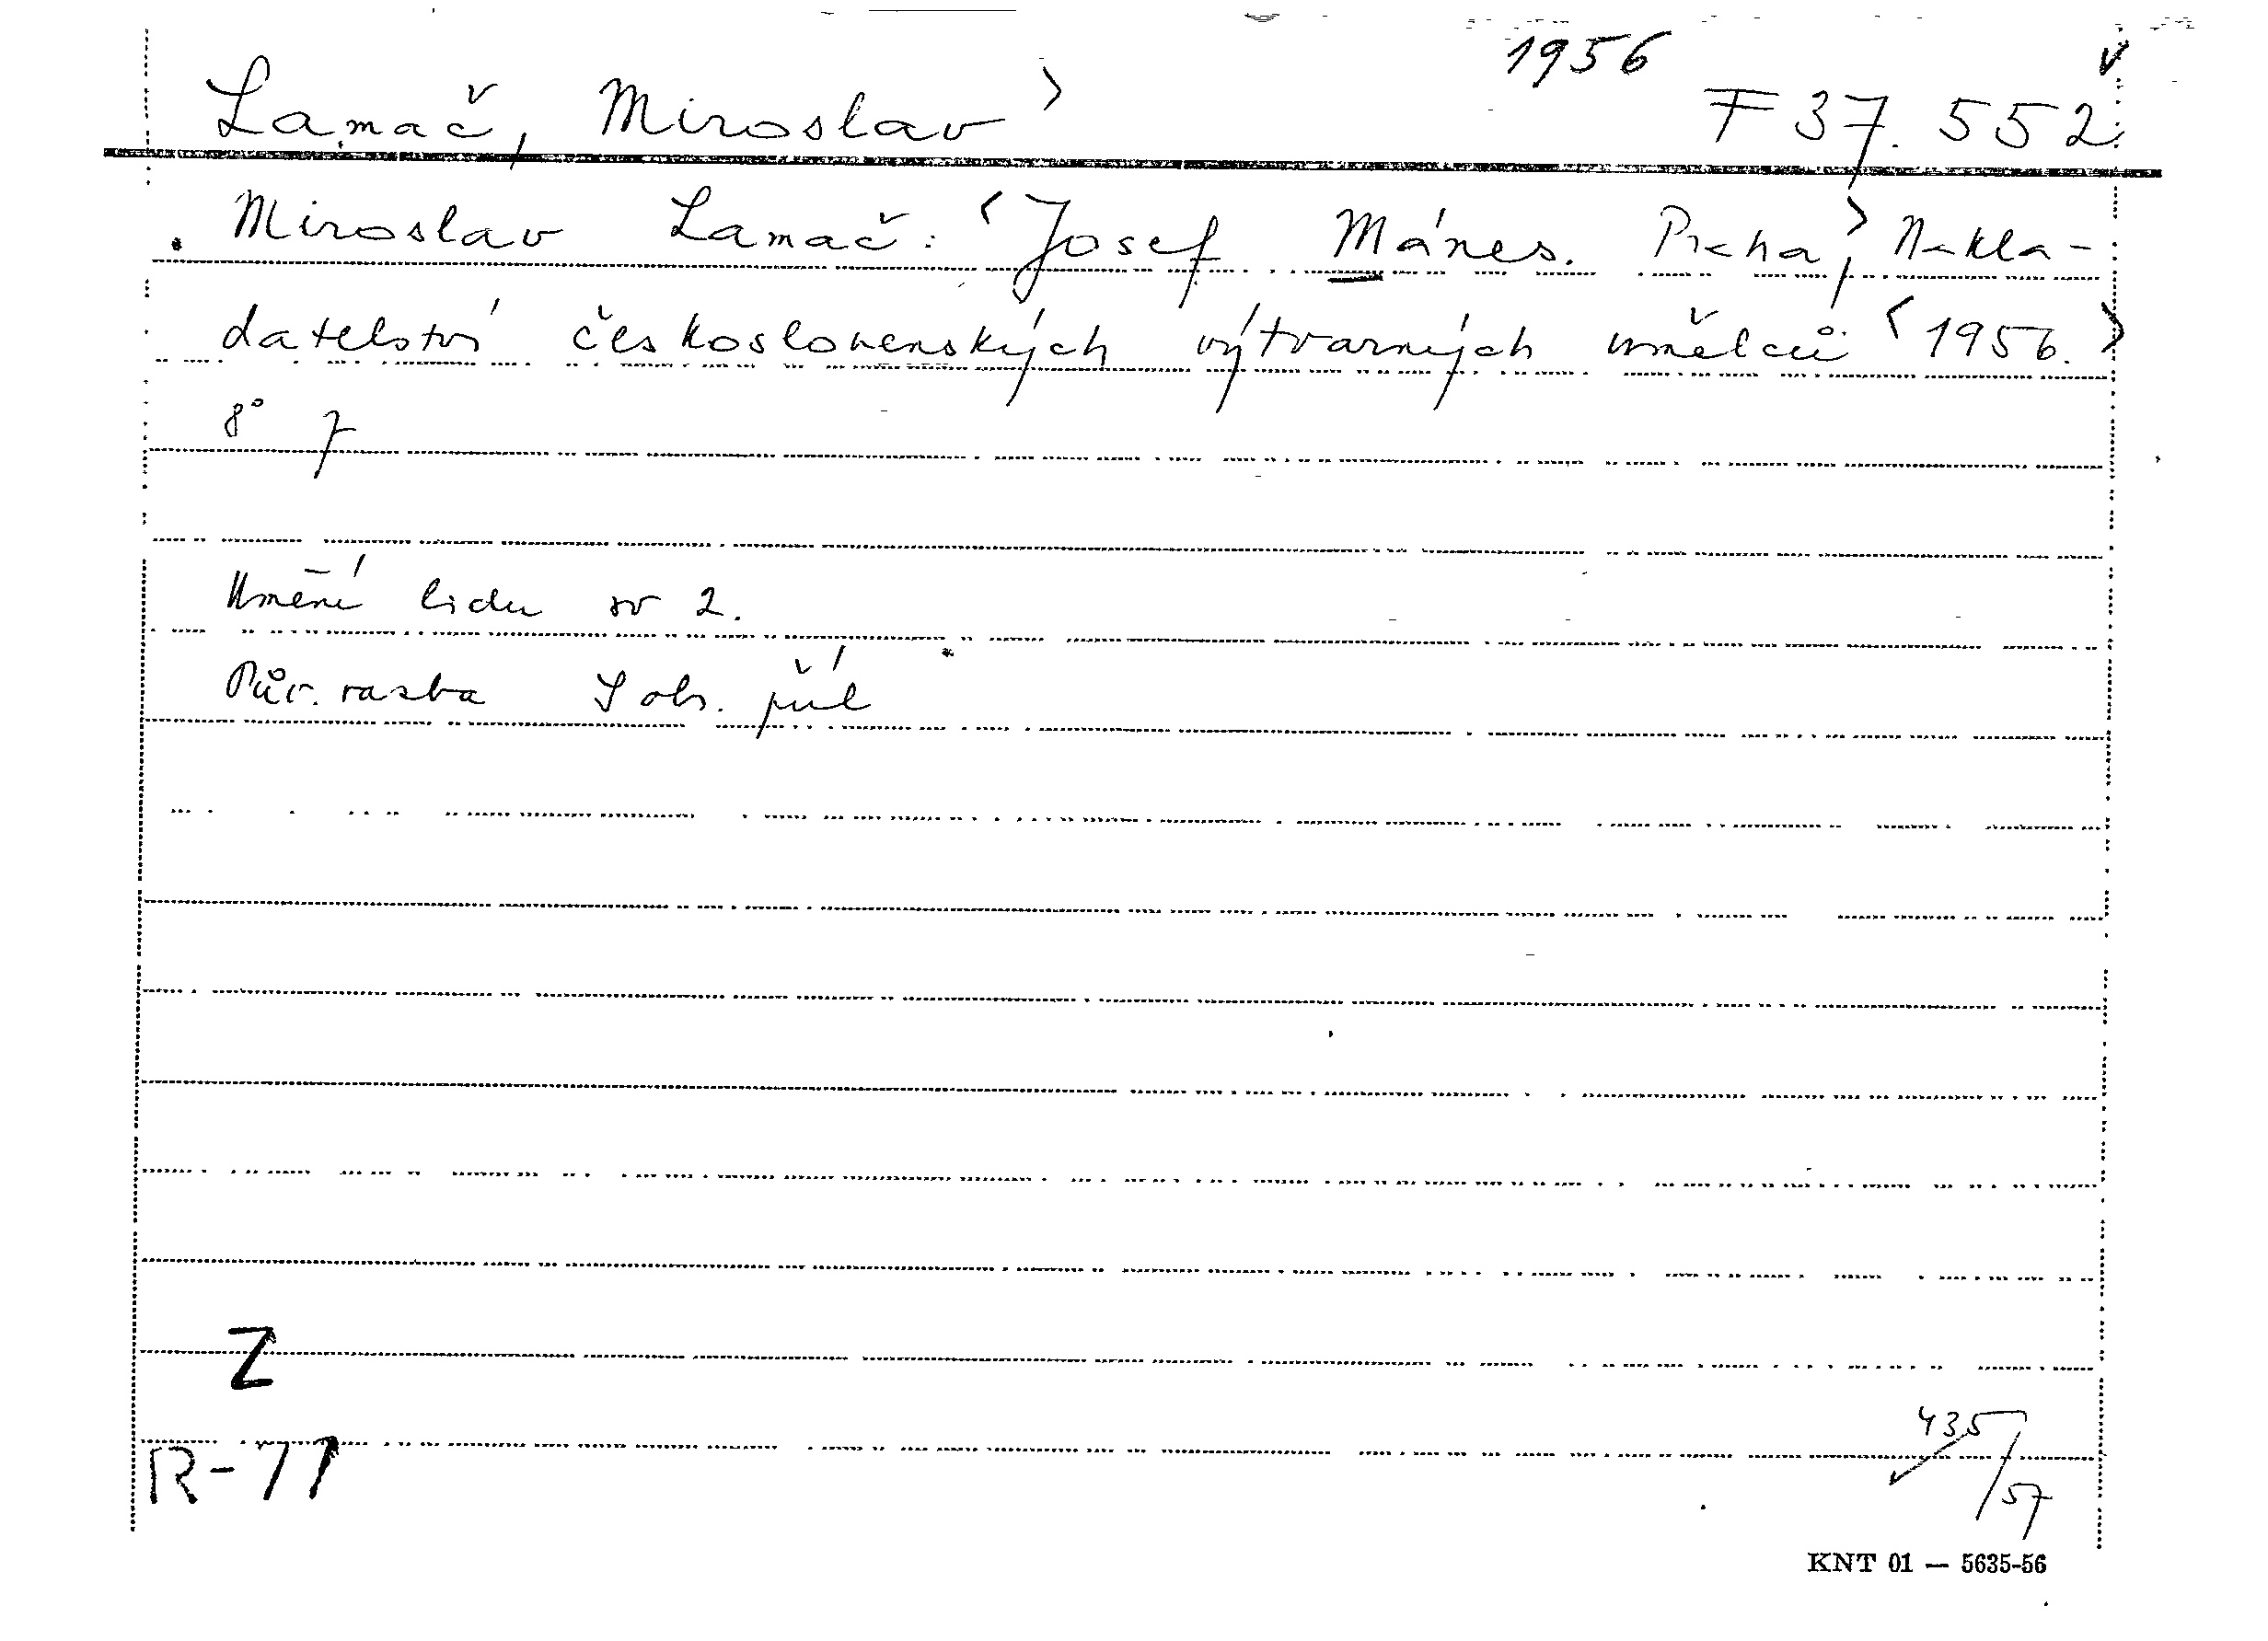 1956
Lamač, Miroslav > F 37.552
Miroslav Lamač: <Josef Mánes. Praha,> Nakla-
datelství československých výtvarných umělců <1956.>
8° 7
Umění lidu sv 2.
Pův. vazba S obr. příl
Z
R-77
435/57
KNT 01 — 5635-56